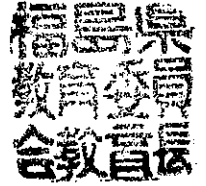 福島県
教育委員
会教育長